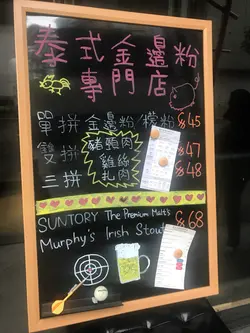 泰式金邊粉
專門店
單拼 金邊粉/檬粉 $45
雙拼 豬頸肉 $47
雞絲
三拼 扎肉 $48
SUNTORY The Premium Malt's $68
Murphy's Irish Stout